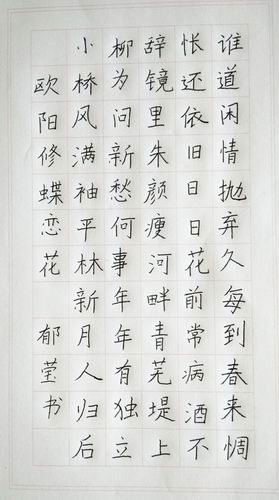 谁道闲情抛弃久每到春来惆
怅还依旧日日花前常病酒不
辞镜里朱颜瘦河畔青芜堤上
柳为问新愁何事年年有独立
小桥风满袖平林新月人归后
欧阳修蝶恋花 郁莹书